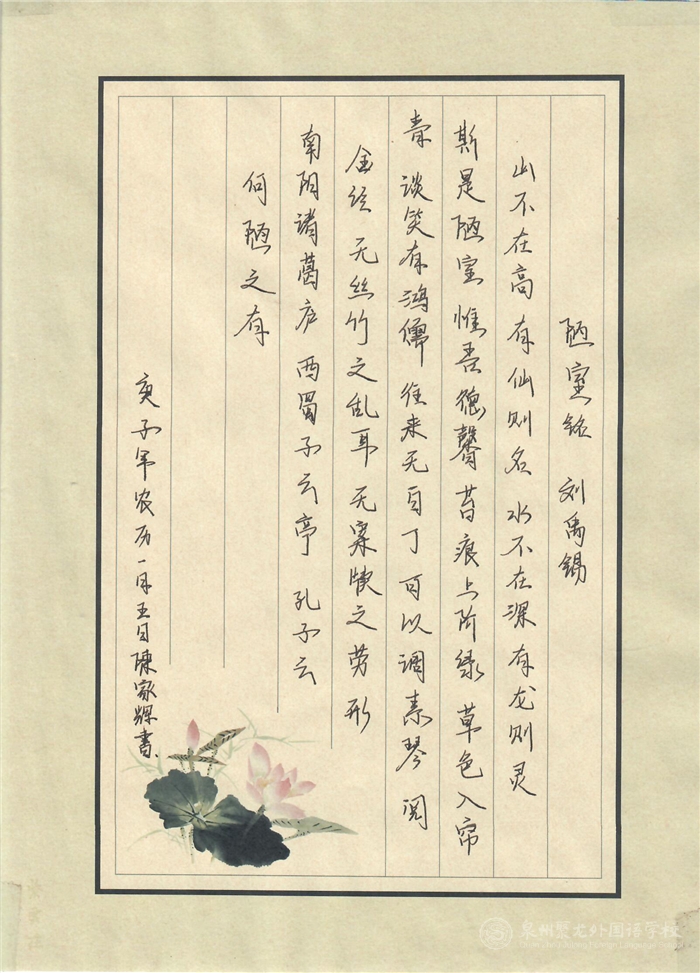 陋室铭 刘禹锡
山不在高 有仙则名 水不在深 有龙则灵
斯是陋室 惟吾德馨 苔痕上阶绿 草色入帘
青 谈笑有鸿儒 往来无白丁 可以调素琴 阅
金经 无丝竹之乱耳 无案牍之劳形
南阳诸葛庐 西蜀子云亭 孔子云
何陋之有
庚子年农历一月五日陳家辉書
泉州聚龙外国语学校